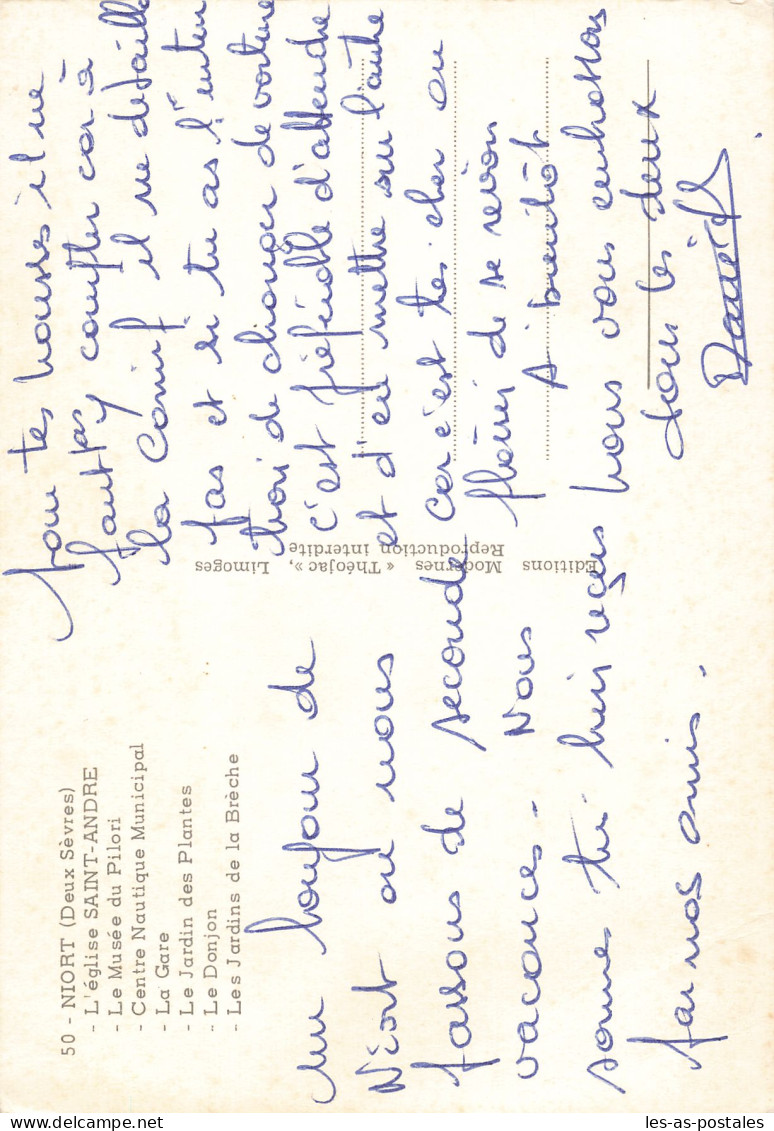 50 - NIORT (Deux Sèvres)
- L'église SAINT-ANDRE
- Le Musée du Pilori
- Centre Nautique Municipal
- La Gare
- Le Jardin des Plantes
- Le Donjon
- Les Jardins de la Brèche
Un bonjour de
Niort où nous
passons de seconde
vacances - Nous
sommes très bien reçus
par nos amis.
Editions Modernes « Théojac », Limoges
Reproduction interdite
Pour tes housses il ne
faut pas y compter car à
la Camif il ne detaille
pas et si tu as l'inten
tion de changer de voiture
c'est préférable d'attendre
et d'en mettre sur l'autre
car c'est très cher au
plaisir de se revoir
A bientôt
nous vous embrassons
tous les deux
les-as-postales